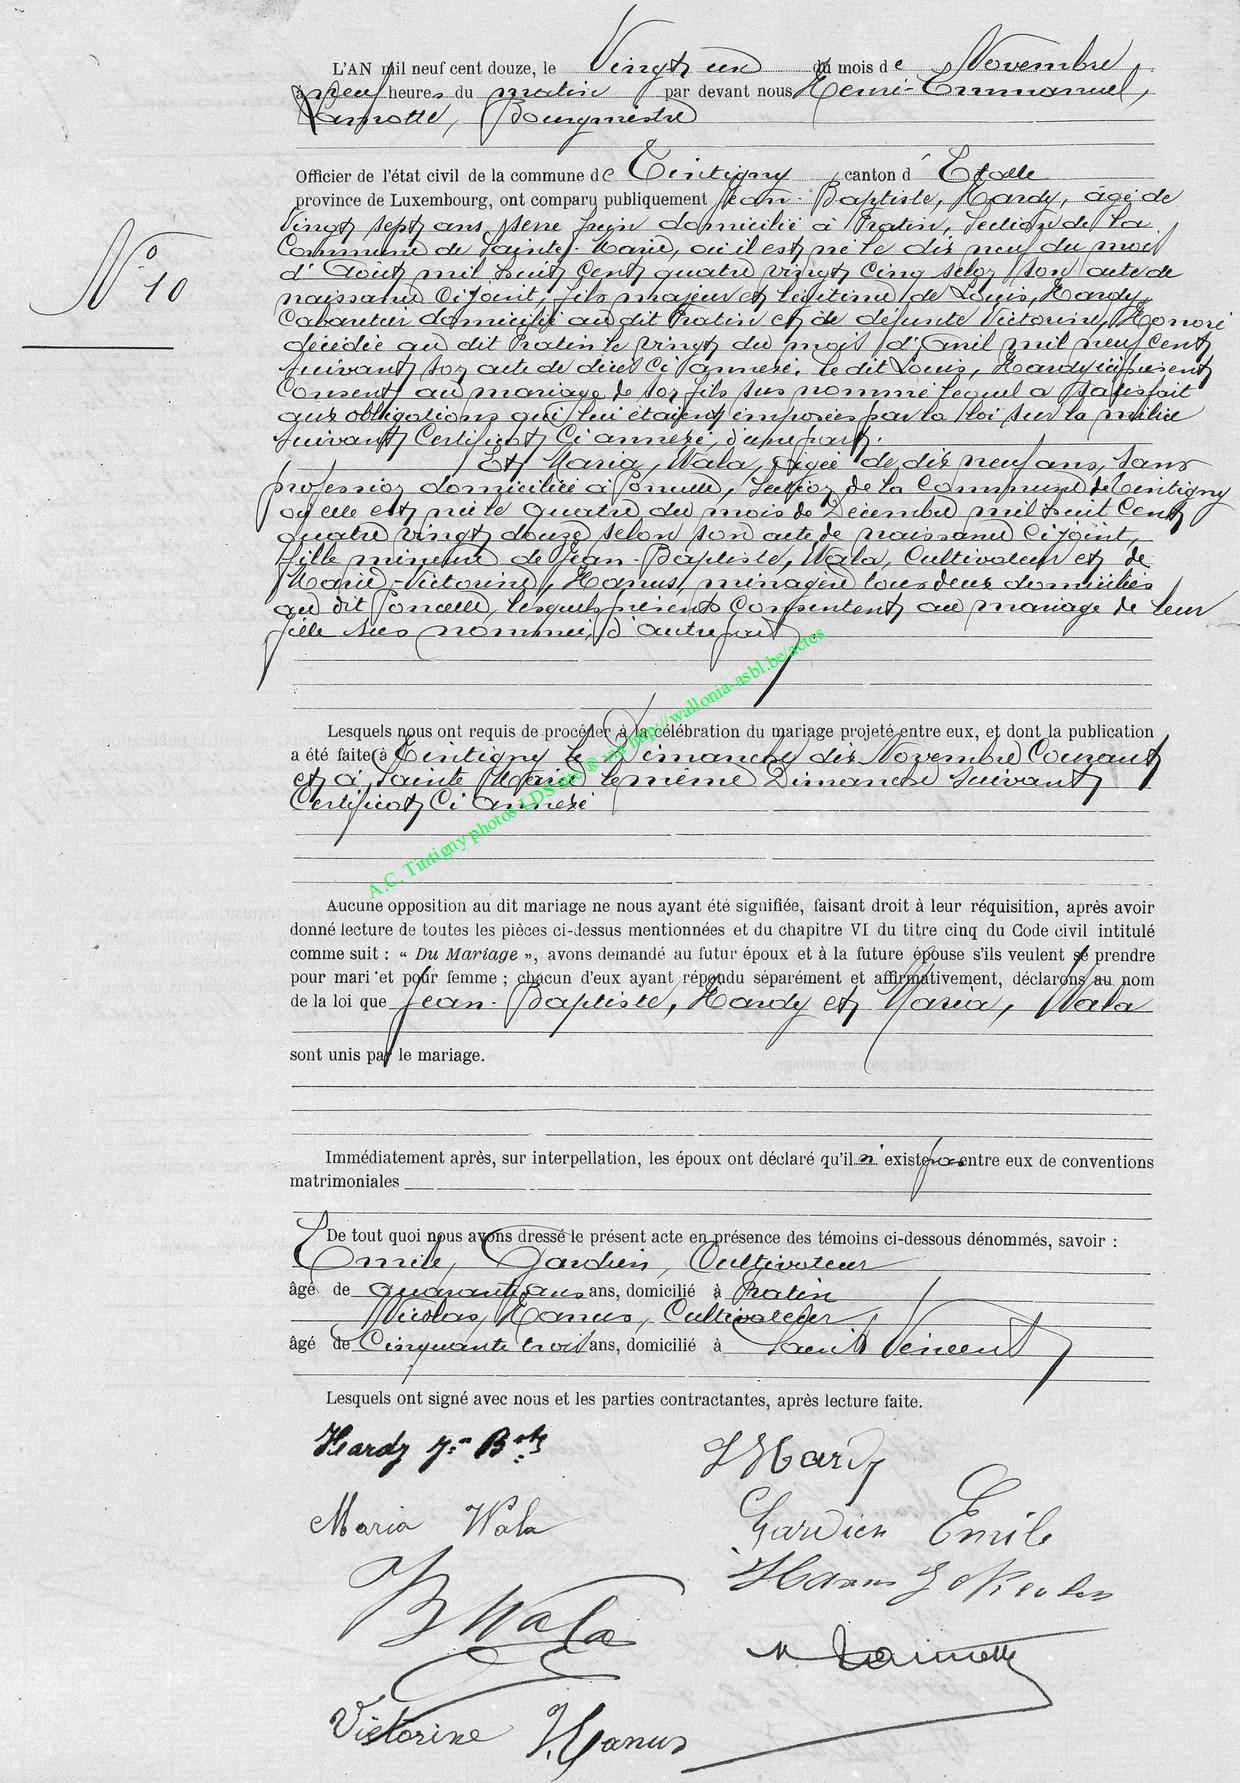 L'AN mil neuf cent douze, le Vingt un du mois de Novembre
à neuf heures du matin par devant nous Henri-Emmanuel,
Lamotte, Bourgmestre
Officier de l'état civil de la commune de Tintigny, canton d'Etalle
province de Luxembourg, ont comparu publiquement Jean-Baptiste, Hardy, âgé de
Vingt sept ans, domicilié à Pratin, Section de la
Commune de Sainte-Marie, où il est né le dix neuf du mois
d'Août mil huit cent quatre vingt cinq selon son acte de
naissance ci joint, fils majeur et légitime de Louis, Hardy,
Cabaretier domicilié au dit Pratin et de défunte Victorine, Honoré
décédée au dit Pratin le vingt du mois d'Avril mil neuf cent
suivant son acte de décès ci annexé, le dit Louis, Hardy ici présent
consent au mariage de son fils sus nommé lequel a satisfait
aux obligations qui lui étaient imposées par la loi sur la milice
suivant Certificat Ci annexé, d'une part.
Et Maria, Wala, âgée de dix neuf ans, sans
profession domiciliée à Poncelle, Section de la Commune de Tintigny
où elle est née le quatre du mois de Décembre mil huit cent
quatre vingt douze selon son acte de naissance Ci joint,
fille mineure de Jean-Baptiste, Wala, Cultivateur et de
Marie-Victorine, Hanus, ménagère tous deux domiciliés
au dit Poncelle, lesquels présents Consentent au mariage de leur
fille sus nommée, d'autre part
Lesquels nous ont requis de procéder à la célébration du mariage projeté entre eux, et dont la publication
a été faite à Tintigny le Dimanche dix Novembre Courant
et à Sainte Marie le même Dimanche suivant
Certificat Ci annexé
A.C. Tintigny photos LDS site® via http://wallonia-asbl.be/actes
Aucune opposition au dit mariage ne nous ayant été signifiée, faisant droit à leur réquisition, après avoir
donné lecture de toutes les pièces ci-dessus mentionnées et du chapitre VI du titre cinq du Code civil intitulé
comme suit : « Du Mariage », avons demandé au futur époux et à la future épouse s'ils veulent se prendre
pour mari et pour femme ; chacun d'eux ayant répondu séparément et affirmativement, déclarons au nom
de la loi que Jean-Baptiste, Hardy et Maria, Wala
sont unis par le mariage.
Immédiatement après, sur interpellation, les époux ont déclaré qu'il n'existe pas entre eux de conventions
matrimoniales
De tout quoi nous avons dressé le présent acte en présence des témoins ci-dessous dénommés, savoir :
Emile, Gardien, Cultivateur
âgé de quarante ans, domicilié à Pratin
Nicolas, Hanus, Cultivateur
âgé de Cinquante trois ans, domicilié à Saint Vincent
Lesquels ont signé avec nous et les parties contractantes, après lecture faite.
Nº 10
Hardy Jn Bte
L Hardy
Maria Wala
Gardien Emile
Hanus J Nicolas
JB Wala
Lamotte
Victorine Hanus